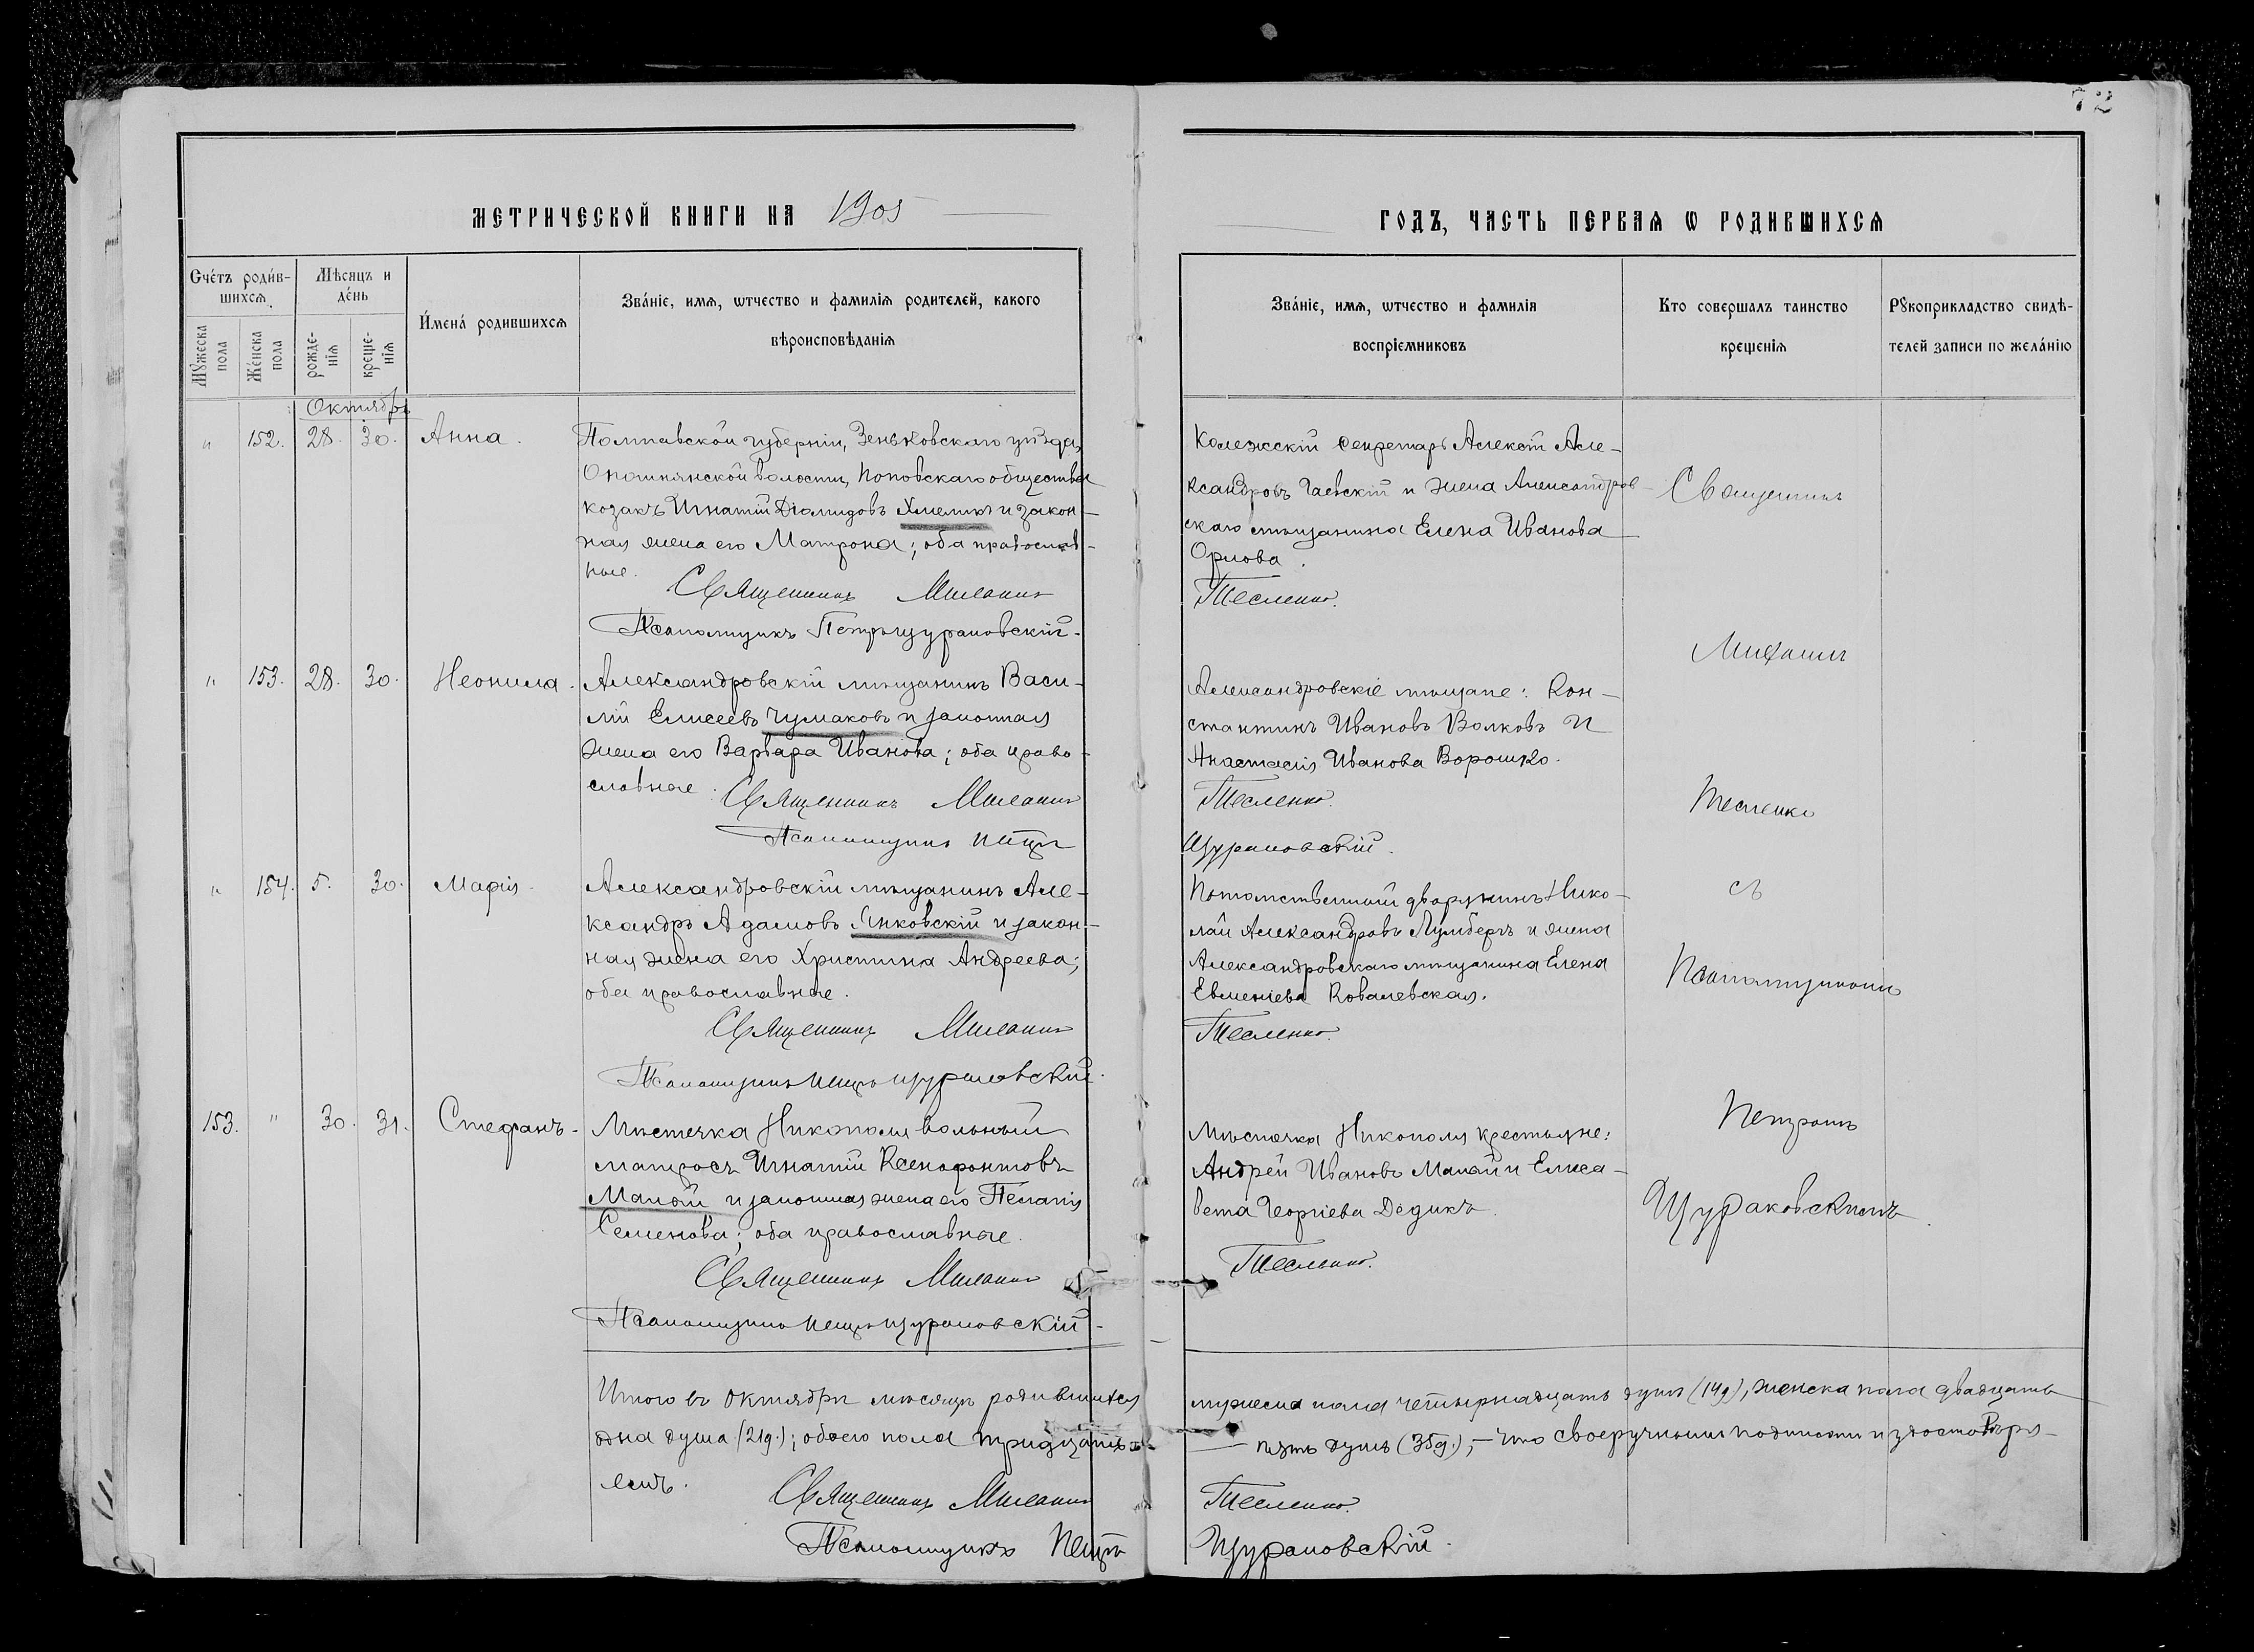 72
МЕТРИЧЕСКОЙ КНИГИ НА 1905
ГОДЪ, ЧАСТЬ ПЕРВАѦ Ѡ РОДИВШИХСѦ
Сче́тъ роди́в-
шихсѧ.
Мѣсяцъ и
де́нь
Мꙋ́жеска
пола
Же́нска
пола
рожде-
нїѧ
креще-
нїѧ
И́мена́ родившихсѧ
Зва́нїе, имѧ, ѿчество и фамилїѧ родителей, какого
вѣроисповѣданїѧ
Зва́нїе, имѧ, ѿчество и фамилїѧ
воспрїемниковъ
Кто совершалъ таинство
крещенїѧ
Рꙋкоприкладство свидѣ-
телей записи по жела́нїю
Октябрь
" 152. 28. 30. Анна.
Полтавской губерніи, Зеньковскаго уѣзда,
Опошнянской волости, Поповскаго общества
козакъ Игнатій Діомидовъ Хмеликъ и закон-
ная жена его Матрона; оба православ-
ные.
Священникъ Михаилъ
Псаломщикъ Петръ Щураковскій.
Колежскій секретарь Алексѣй Але-
ксандровъ Гаевскій и жена Александров-
скаго мѣщанина Елена Иванова
Орлова.
Тесленко.
" 153. 28. 30. Неонила.
Александровскій мѣщанинъ Васи-
лій Елисеевъ Чумаковъ и законная
жена его Варвара Иванова; оба право-
славные.
Священникъ Михаилъ
Псаломщикъ Петръ
Александровскіе мѣщане: Кон-
стантинъ Ивановъ Волковъ и
Анастасія Иванова Ворошко.
Тесленко.
Щураковскій.
" 154. 5. 30. Марія.
Александровскій мѣщанинъ Але-
ксандръ Адамовъ Янковскій и закон-
ная жена его Христина Андреева;
оба православные.
Священникъ Михаилъ
Псаломщикъ Петръ Щураковскій.
Потомственный дворянинъ Нико-
лай Александровъ Лумбергъ и жена
Александровскаго мѣщанина Елена
Евменіева Ковалевская.
Тесленко.
153. " 30. 31. Стефанъ.
Мѣстечка Никополя вольный
матросъ Игнатій Ксенофонтовъ
Малый и законная жена его Пелагія
Семенова; оба православные.
Священникъ Михаилъ
Псаломщикъ Петръ Щураковскій.
Мѣстечка Никополя крестьяне:
Андрей Ивановъ Малый и Елиса-
вета Георгіева Дедикъ.
Тесленко.
Священникъ
Михаилъ
Тесленко
съ
Псаломщикомъ
Петромъ
Щураковскимъ.
Итого въ Октябрѣ мѣсяцѣ родившихся мужеска пола четырнадцать душъ (14д), женска пола двадцать
одна душа (21д.); обоего пола тридцать пять душъ (35д.), – что своеручными подписями удостовѣря-
емъ.
Священникъ Михаилъ Тесленко.
Псаломщикъ Петръ Щураковскій.